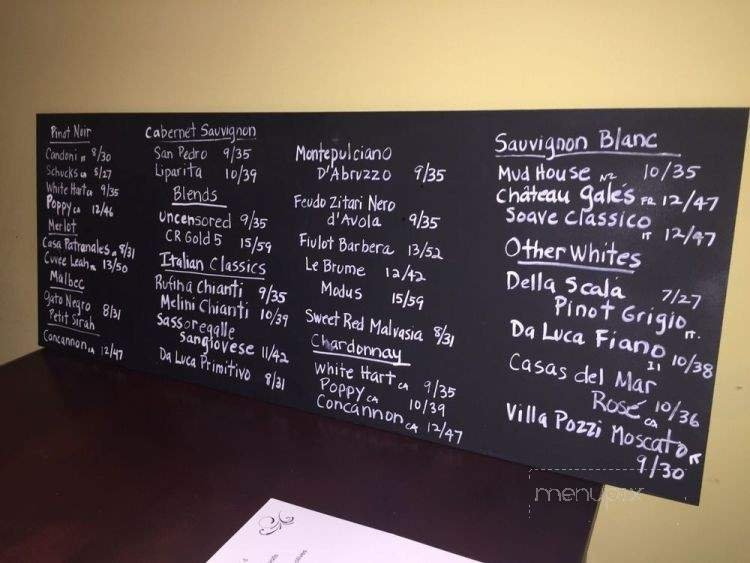 Pinot Noir
Candoni 8/30
Schucks ca 8/27
White Hart ca 9/35
Poppy ca 12/46
Merlot
Casa Patronales 8/31
Cuvee Leah 13/50
Malbec
Gato Negro 8/31
Petit Sirah
Concannon ca 12/47
Cabernet Sauvignon
San Pedro 9/35
Liparita 10/39
Blends
uncensored 9/35
CR Gold 5 15/59
Italian Classics
Rufina Chianti 9/35
Melini Chianti 10/39
Sassoregalle
Sangiovese 11/42
Da Luca Primitivo 8/31
Montepulciano
D'Abruzzo 9/35
Feudo Zitari Nero
d'Avola 9/35
Fiulot Barbera 13/52
Le Brume 12/42
Modus 15/59
Sweet Red Malvasia 8/31
Chardonnay
White Hart ca 9/35
Poppy ca 10/39
Concannon ca 12/47
Sauvignon Blanc
Mud House NZ 10/35
Château gales FR 12/47
Soave Classico
IT 12/47
Other Whites
Della Scala 7/27
Pinot Grigio IT.
Da Luca Fiano 10/38
Casas del Mar
Rosé ca 10/36
Villa Pozzi Moscato IT
9/30
menupix